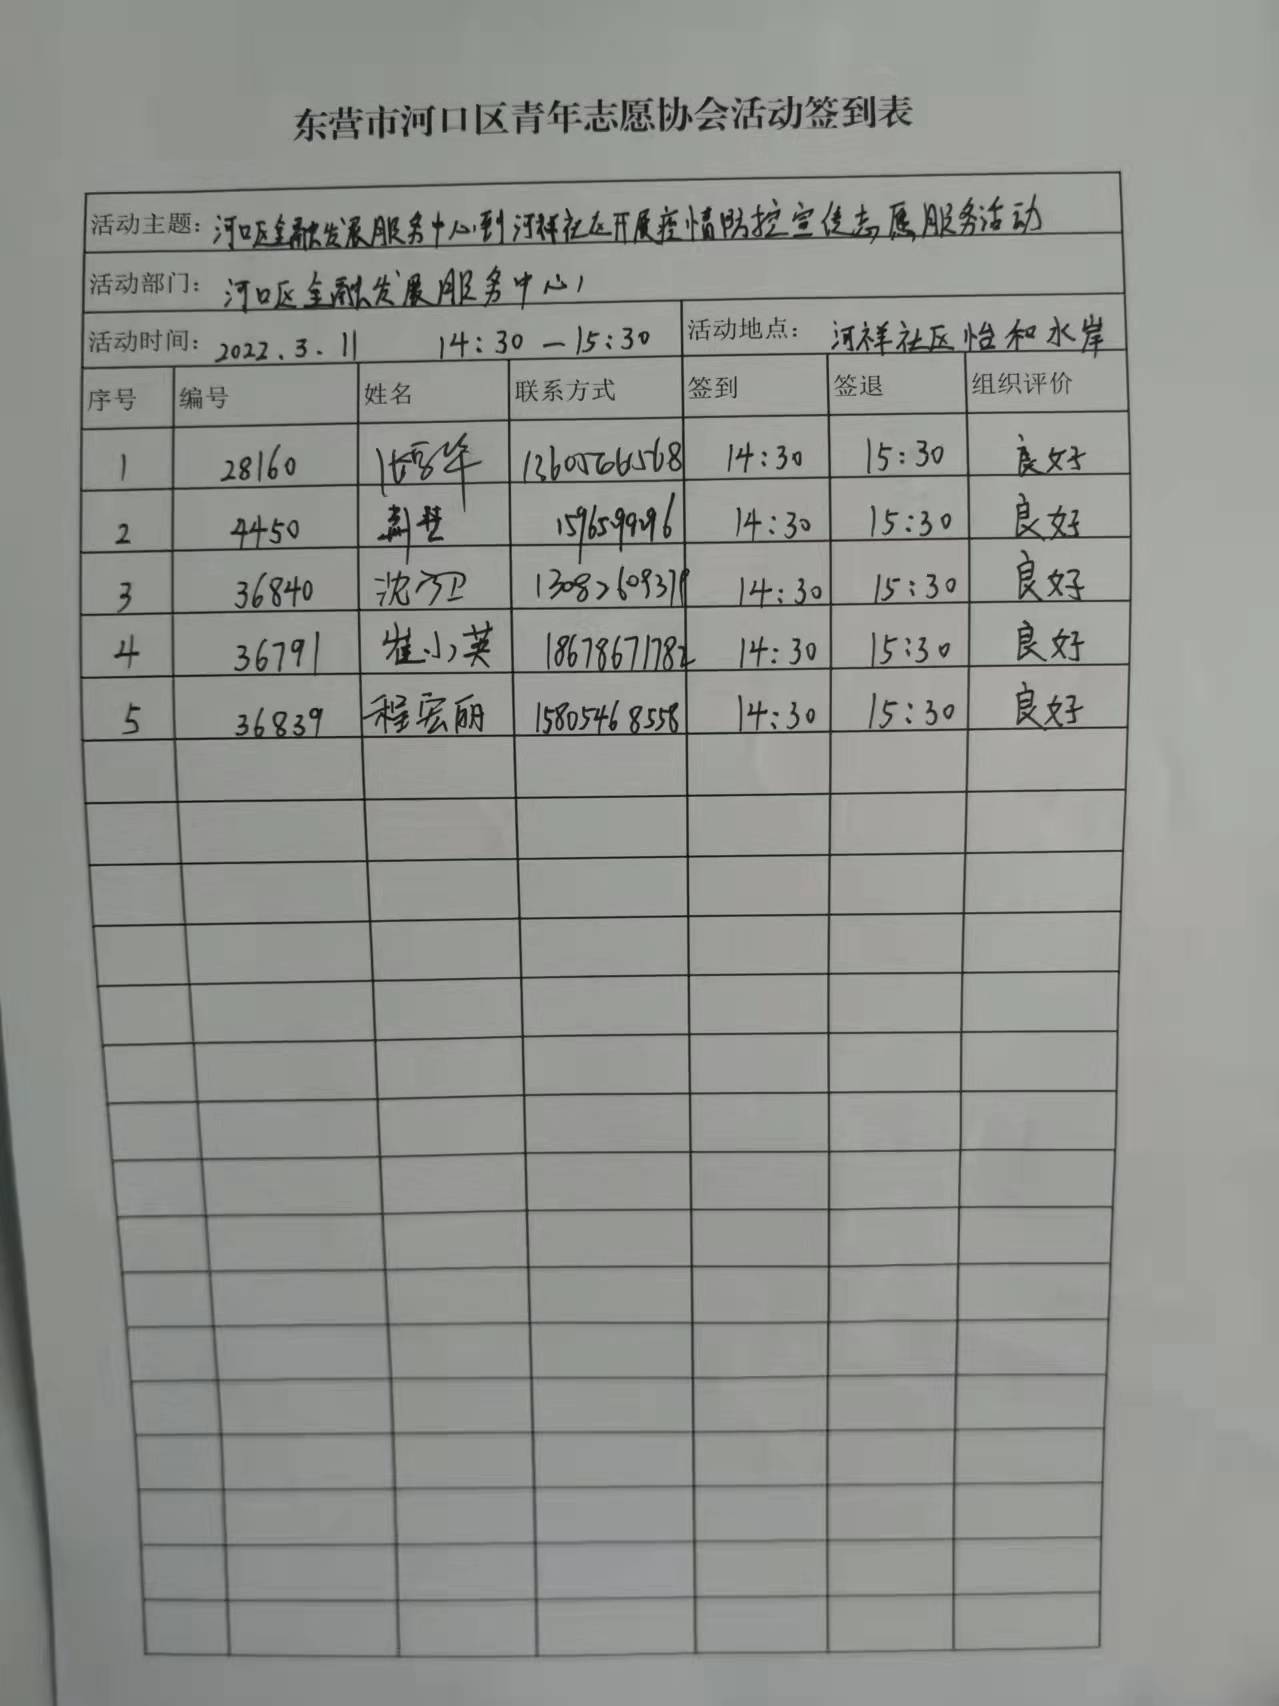 东营市河口区青年志愿协会活动签到表
活动主题：河口区金融发展服务中心到河祥社区开展疫情防控宣传志愿服务活动
活动部门：河口区金融发展服务中心
活动时间：2022.3.11 14:30—15:30 活动地点：河祥社区怡和水岸
序号 编号 姓名 联系方式 签到 签退 组织评价
1 28160 14:30 15:30 良好
2 4450 15965499296 14:30 15:30 良好
3 36840 沈卫 14:30 15:30 良好
4 36791 崔小英 18678671782 14:30 15:30 良好
5 36839 程宏丽 15805468558 14:30 15:30 良好